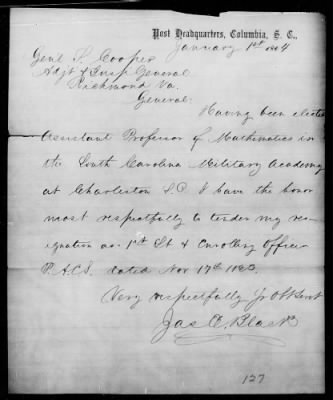 Post Headquarters, Columbia, S. C.,
January 1st 1864
Genl S. Cooper
Adjt & Insp General
Richmond Va.
General:
Having been elected
Assistant Professor of Mathematics in
the South Carolina Military Academy
at Charleston S.C. I have the honor
most respectfully to tender my res-
ignation as 1st Lt & Enrolling Officer
P.A.C.S. dated Nov 17th 1863.
Very respectfully Yr Obt Servt
Jas E. Black
127